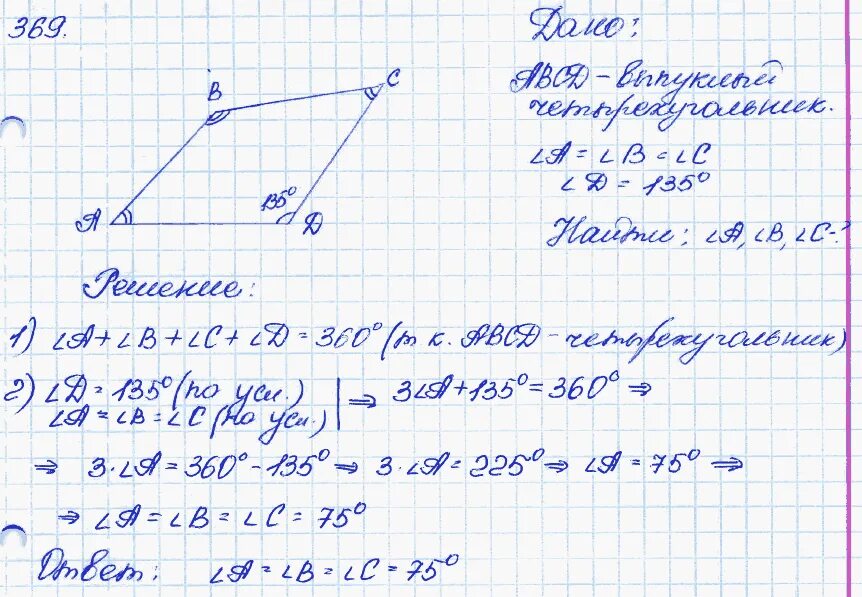 369.
Дано:
ABCD - выпуклый
четырехугольник.
∠A = ∠B = ∠C
∠D = 135°
Найти: ∠A, ∠B, ∠C-?
B
C
A
135°
D
Решение:
1) ∠A + ∠B + ∠C + ∠D = 360° (т к. ABCD - четырехугольник)
2) ∠D = 135° (по усл.)
∠A = ∠B = ∠C (по усл.)
⇒ 3∠A + 135° = 360° ⇒
⇒ 3·∠A = 360° - 135° ⇒ 3·∠A = 225° ⇒ ∠A = 75° ⇒
⇒ ∠A = ∠B = ∠C = 75°
Ответ: ∠A = ∠B = ∠C = 75°